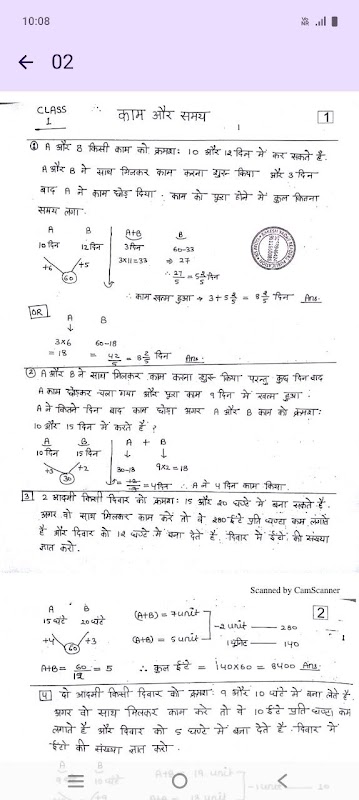 10:08
← 02
CLASS 1 ∴ काम और समय 1
① A और B किसी काम को क्रमशः 10 और 12 दिन में कर सकते हैं.
A और B ने साथ मिलकर काम करना शुरू किया और 3 दिन
बाद A ने काम छोड़ दिया. काम को पूरा होने में कुल कितना
समय लगा.
A B A+B B
10 दिन 12 दिन 3 दिन 60-33
+6 +5 3×11=33 ⇒ 27
60 ∴ 27/5 = 5 2/5 दिन
∴ काम खत्म हुआ → 3+5 2/5 = 8 2/5 दिन Ans.
OR A B
↓ ↓
3×6 60-18
= 18 = 42/5 = 8 2/5 दिन Ans.
② A और B ने साथ मिलकर काम करना शुरू किया परन्तु कुछ दिन बाद
A काम छोड़कर चला गया और पूरा काम 9 दिन में खत्म हुआ.
A ने कितने दिन बाद काम छोड़ा अगर A और B काम को क्रमशः
10 और 15 दिन में करते हैं ?
A B A + B
10 दिन 15 दिन ↓ ↓
+3 +2 30-18 9×2=18
30 = 12/3 = 4 दिन ∴ A ने 4 दिन काम किया.
3 2 आदमी किसी दिवार को क्रमशः 15 और 20 घण्टे में बना सकते हैं.
अगर वो साथ मिलकर काम करें तो वे 280 ईंटे प्रति घण्टा कम लगाते
हैं और दिवार को 12 घण्टे में बना देते हैं. दिवार में ईंटों की संख्या
ज्ञात करो.
Scanned by CamScanner
2
A B
15 घंटे 20 घंटे (A+B) = 7 unit
+4 +3 -2 unit — 280
60 (A+B) = 5 unit 1 यूनिट — 140
A+B = 60/12 = 5 ∴ कुल ईंटे = 140×60 = 8400 Ans.
4 दो आदमी किसी दिवार को क्रमशः 9 और 10 घंटे में बना लेते हैं.
अगर वो साथ मिलकर काम करे तो वे 10 ईंटे प्रति घण्टा कम
लगाते हैं और दिवार को 5 घण्टे में बना देते हैं. दिवार में
ईंटों की संख्या ज्ञात करो.
A B A+B = 19 unit